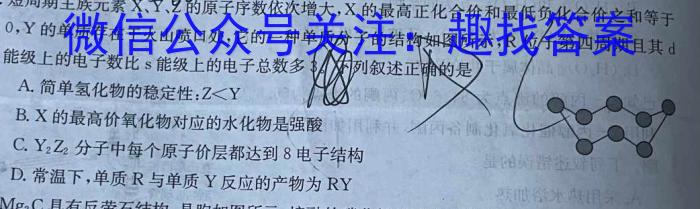 短周期主族元素X、Y、Z的原子序数依次增大,X的最高正化合价和最低负化合价之和等于
0,Y的单质存在于火山喷口处,它的一种单质分子的结构如图所示,R位于第四周期且其d
微信公众号关注:趣找答案
能级上的电子数比s能级上的电子总数多 下列叙述正确的是
A. 简单氢化物的稳定性:Z<Y
B. X的最高价氧化物对应的水化物是强酸
C. Y₂Z₂ 分子中每个原子价层都达到8电子结构
D. 常温下,单质R与单质Y反应的产物为RY